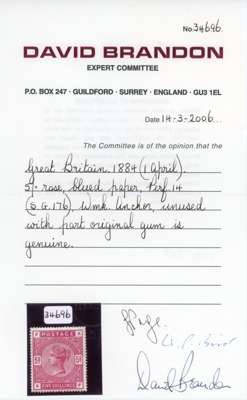 No. 34696
DAVID BRANDON
EXPERT COMMITTEE
P.O. BOX 247 · GUILDFORD · SURREY · ENGLAND · GU3 1EL
Date 14-3-2006
The Committee is of the opinion that the
Great Britain. 1884 (1 April).
5/- rose, blued paper, Perf. 14
(S.G. 176), Wmk. Anchor, unused
with part original gum is
genuine.
34696
POSTAGE
FIVE SHILLINGS
David Brandon